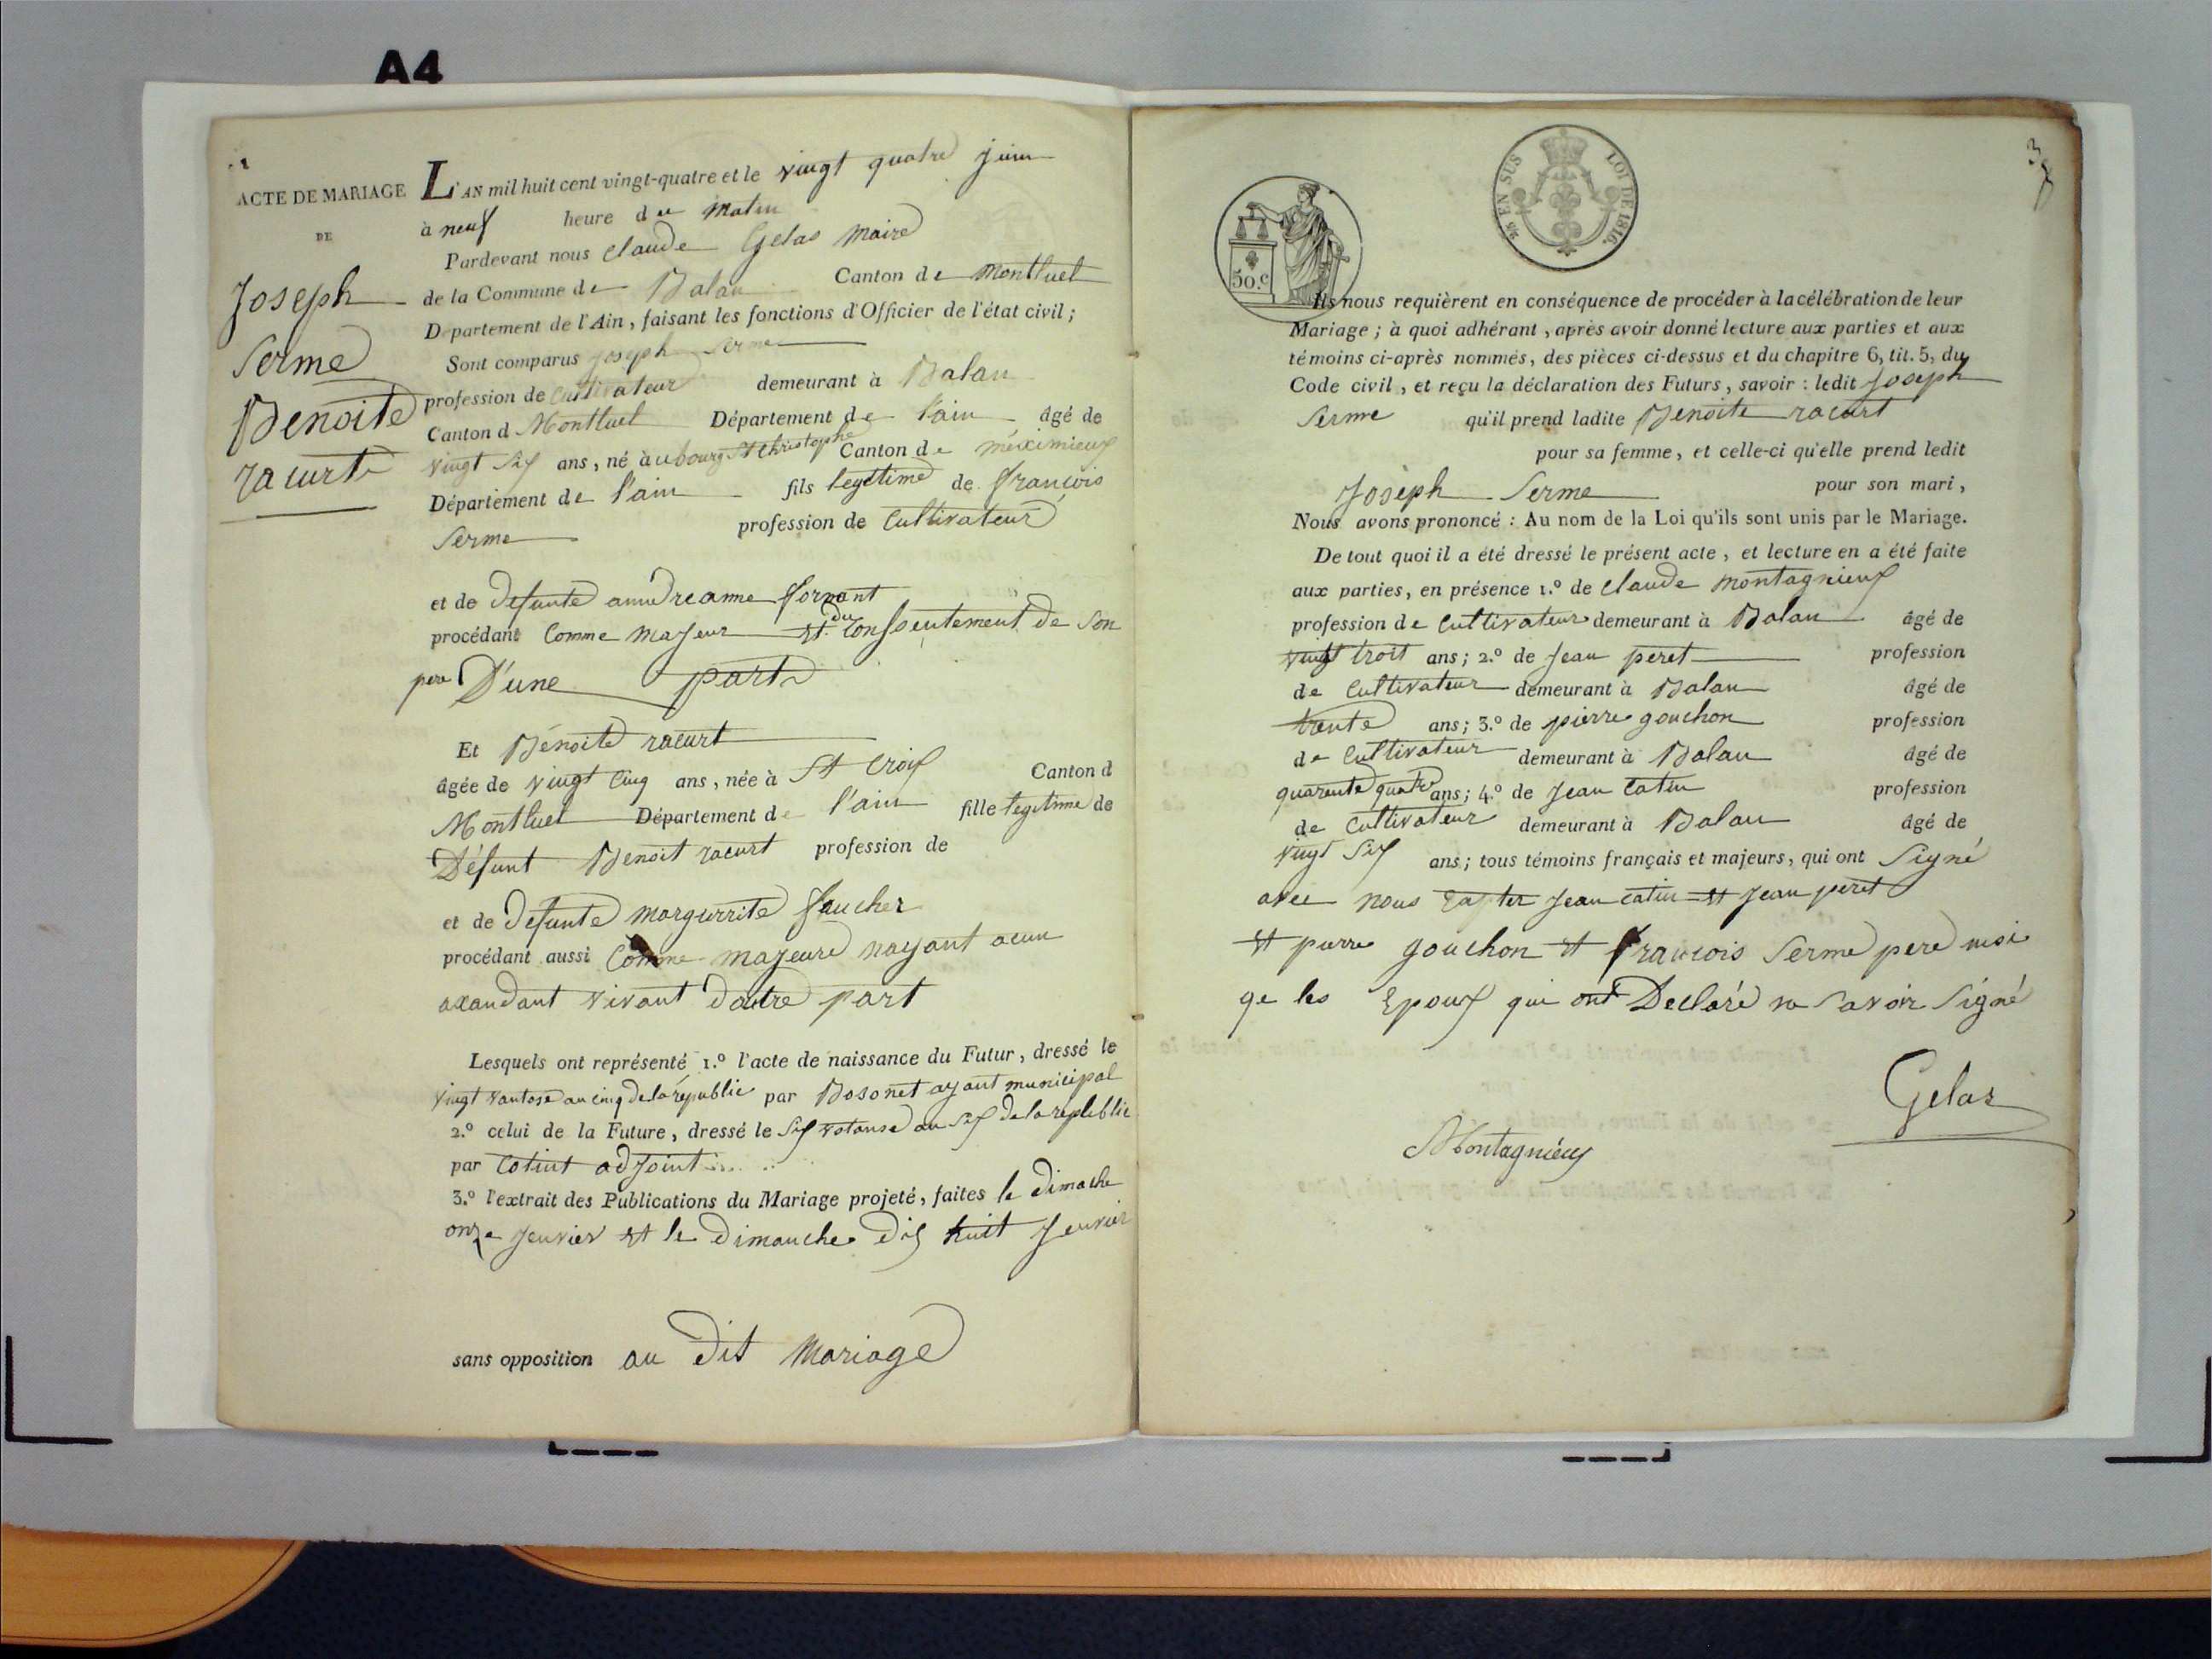 A4
ACTE DE MARIAGE
DE
Joseph
Serme
Benoite
racurt
L'AN mil huit cent vingt-quatre et le vingt quatre juin
à neuf heure du matin
Pardevant nous Claude Gelas Maire
de la Commune de Balan Canton de montluel
Département de l'Ain, faisant les fonctions d'Officier de l'état civil;
Sont comparus joseph Serme
profession de Cultivateur demeurant à Balan
Canton d Montluel Département de l'ain âgé de
vingt Six ans, né àu bourg St Christophe Canton de méximieux
Département de l'ain fils legetime de francois
Serme profession de Cultivateur
et de defunte anndreanne fornant
procédant Comme majeur et du Conssentement de Son
pere D'une part
Et Bénoite racurt
âgée de vingt Cinq ans, née à St Croix Canton d
Montluel Département de l'ain fille legetime de
Défunt Benoit racurt profession de
et de defunte margurrite faucher
procédant aussi Comme majeure nayant acun
axandant vivant dautre part
Lesquels ont représenté 1.º l'acte de naissance du Futur, dressé le
vingt vantose an cinq de la républic par Bosonet ajant municipal
2.º celui de la Future, dressé le Six votanse an Six de la repleblic
par Cotint adjoint
3.º l'extrait des Publications du Mariage projeté, faites le dimache
onze Jenvier et le dimanche dix huit Jenvier
sans opposition au dit Mariage
3
50.c
25 EN SUS LOI DE 1816.
Ils nous requièrent en conséquence de procéder à la célébration de leur
Mariage; à quoi adhérant, après avoir donné lecture aux parties et aux
témoins ci-après nommés, des pièces ci-dessus et du chapitre 6, tit. 5, du
Code civil, et reçu la déclaration des Futurs, savoir: ledit Joseph
Serme qu'il prend ladite Benoite racurt
pour sa femme, et celle-ci qu'elle prend ledit
Joseph Serme pour son mari,
Nous avons prononcé: Au nom de la Loi qu'ils sont unis par le Mariage.
De tout quoi il a été dressé le présent acte, et lecture en a été faite
aux parties, en présence 1.º de Claude montagnieux
profession de Cultivateur demeurant à Balan âgé de
vingt troit ans; 2.º de Jean peret profession
de Cultivateur demeurant à Balan âgé de
trente ans; 3.º de pierre gouchon profession
de Cultivateur demeurant à Balan âgé de
quarente quatre ans; 4.º de Jean Catin profession
de Cultivateur demeurant à Balan âgé de
vingt Six ans; tous témoins français et majeurs, qui ont Signé
avec nous Jean catin et Jean peret
et pierre gouchon et francois Serme pere insi
qe les Epoux qui ont Declaré ne Savoir Signé
Gelas
Montagniéux